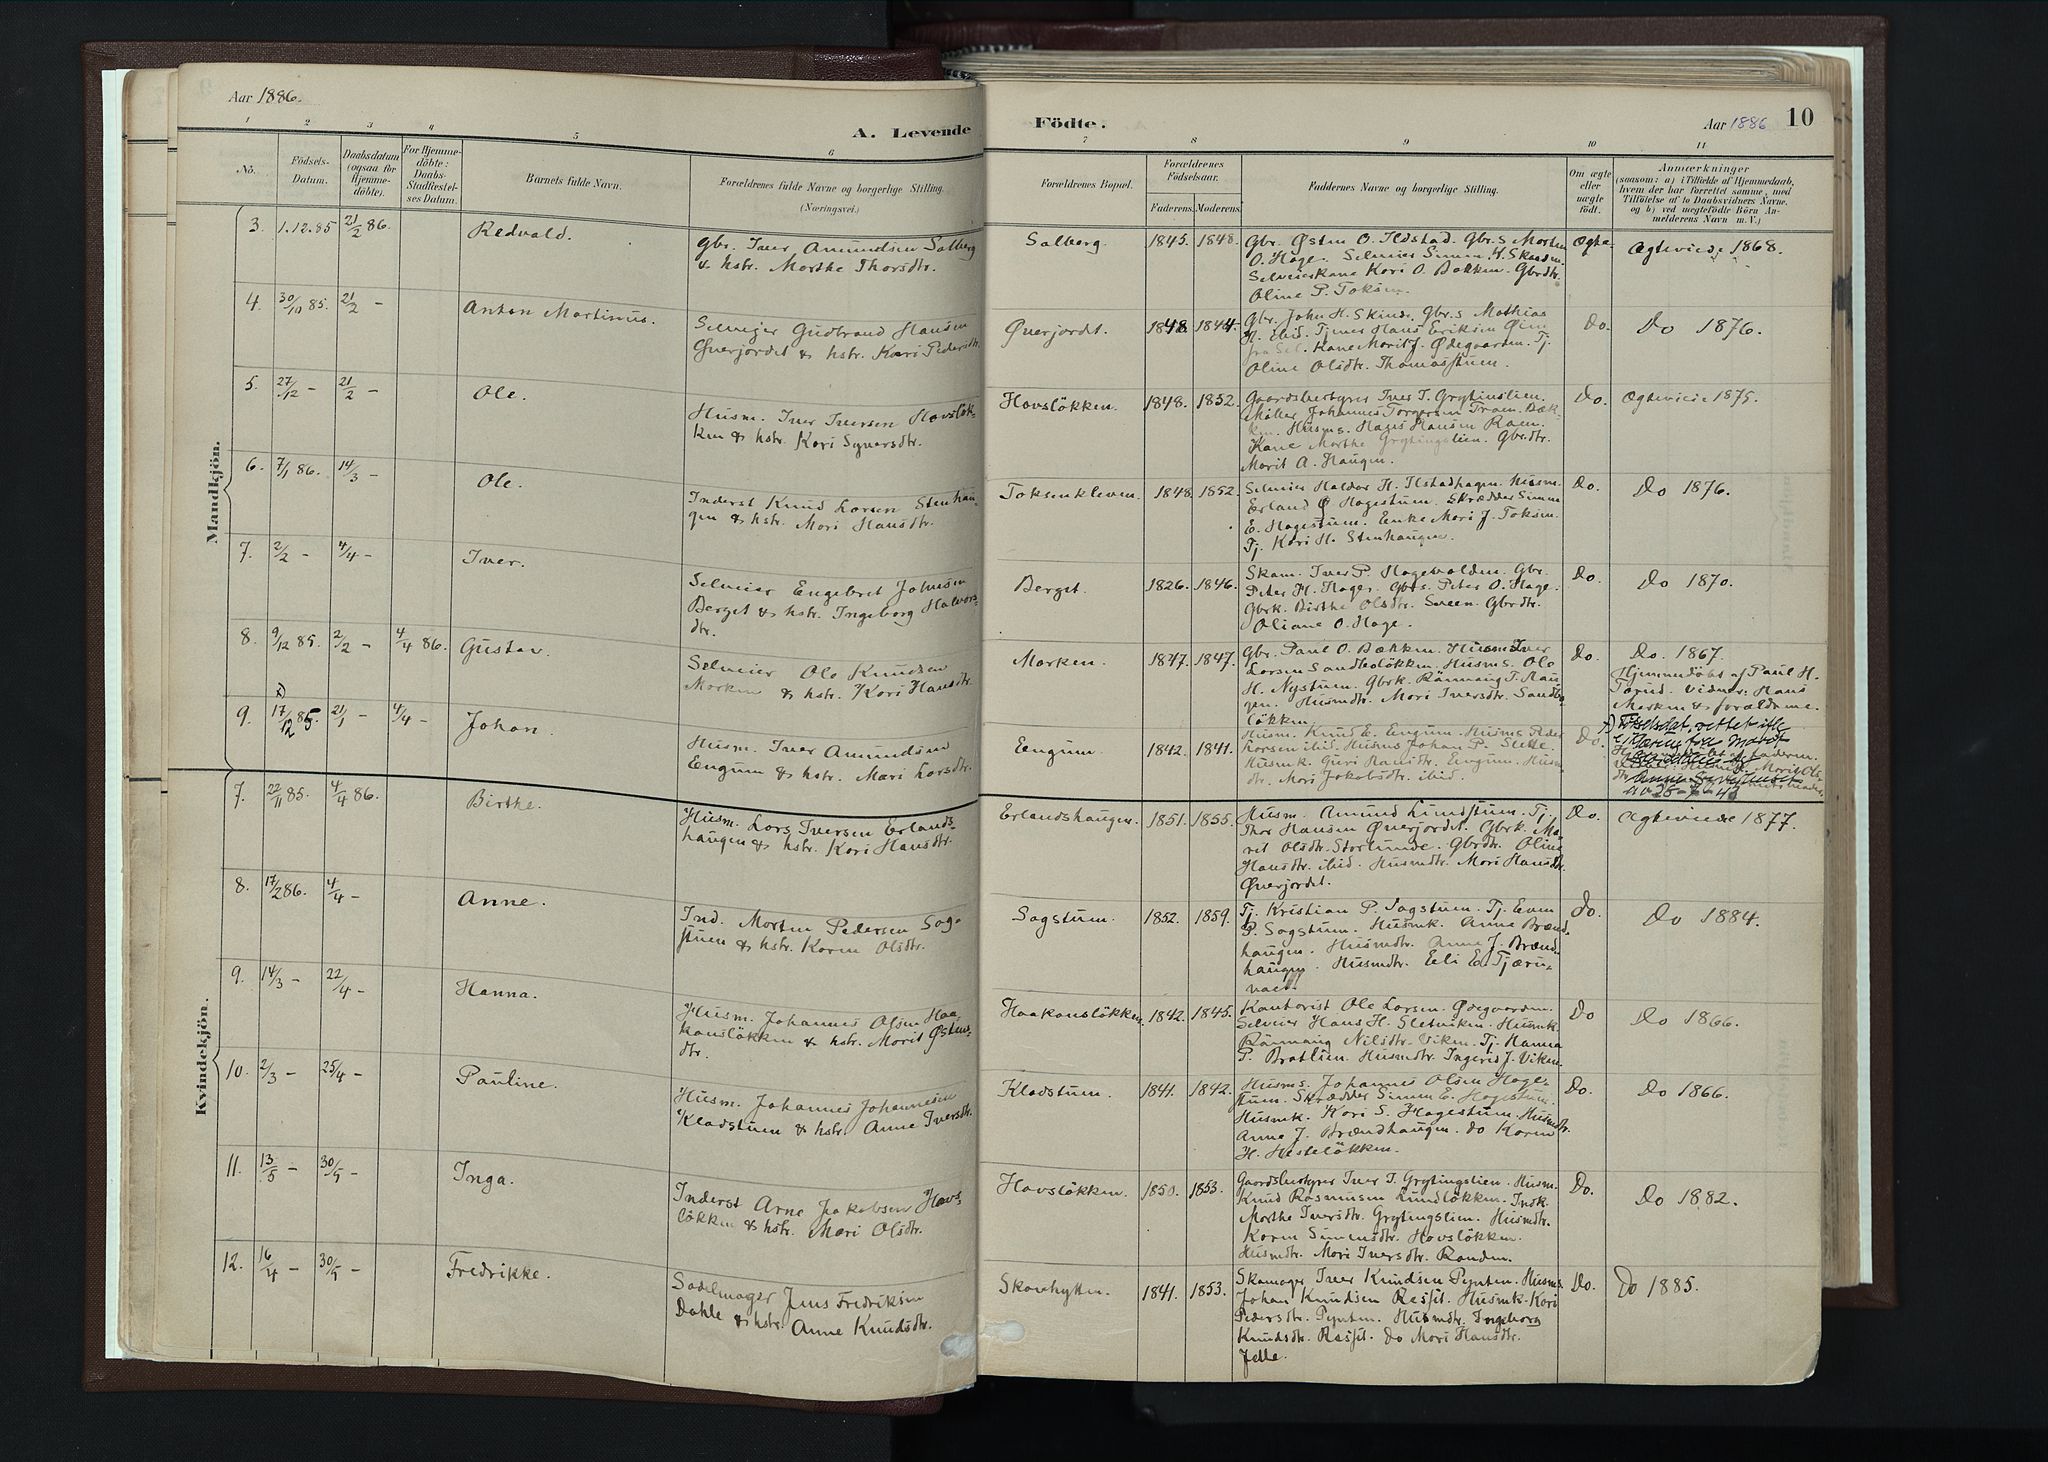 Aar 1886.
A. Levende
Födte.
Aar 1886
10
1 2 3 4 5 6
7 8 9 10 11
No.
Födsels-
Datum.
Daabsdatum
(ogsaa for
Hjemme-
döbte).
For Hjemme-
döbte:
Daabs-
Stadfæstel-
ses Datum.
Barnets fulde Navn.
Forældrenes fulde Navne og borgerlige Stilling.
(Næringsvei.)
Forældrenes Bopæl.
Forældrenes
Födselsaar.
Faderens. Moderens.
Faddernes Navne og borgerlige Stilling.
Om ægte
eller
uægte
født.
Anmærkninger
(saasom: a) i Tilfælde af Hjemmedaab,
hvem der har forrettet samme, med
Tilföielse af to Daabsvidners Navne.
og b) ved uegtefödte Börn An-
melderens Navn m. V.)
Mandkjön.
3. 1.12.85 21/2 86. Redvald.
Gbr. Iver Amundsen Solberg
& hstr. Marthe Thorsdtr.
Solberg. 1845. 1848.
Gbr. Østen O. Ildstad. Gbr.s Morten
O. Hage.
Selveierkone Kari O. Bakken. Gbrdtr.
Oline P. Toksen.
Ægte. Ægteviede 1868.
4. 30/10 85. 21/2 - Anton Martinus.
Selveier Gudbrand Hansen
Øverjordet & hstr. Kari Pedersdtr.
Øverjordet. 1848 1844.
Gbr. John H. Skinds. Gbr.s Mathias
H. ibid. Tjener Hans Eriksen Øien
fra Sel. Kone Marit J. Ødegaarden. Tj.
Oline Olsdtr. Thomasstuen.
Do. Do 1876.
5. 27/12 - 21/2 - Ole.
Husm. Iver Iversen Hovsløk-
ken & hstr. Kari Syversdtr.
Hovslökken. 1848. 1852.
Gaardsbestyrer Iver I. Grytingslien.
Møller Johannes Torgersen Fron. Bæk-
ken. Husms. Hans Hansen Raen.
Kone Marthe Grytingslien. Gbrdtr.
Marit A. Haugen.
Do. Ægteviede 1875.
6. 7/1 86. 14/3 - Ole.
Inderst Knud Larsen Stenhau-
gen & hstr. Mari Hansdtr.
Toksenkleven. 1848. 1852.
Selveier Haldor H. Ilstadhagen. Husm.
Erland Ø Hagestuen. Skrædder Simen
E. Hagestuen. Enke Mari J. Toksen.
Tj. Kari H. Stenhaugen.
Do. Do 1876.
7. 2/2 - 4/4 - Iver.
Selveier Engebret Johnsen
Berget & hstr. Ingeborg Halvors-
dtr.
Berget. 1826. 1846.
Skom. Iver P. Hagevolden. Gbr.
Peter H. Hage. Gbrs. Peter O. Hage.
Gbrk. Birthe Olsdtr. Sveen. Gbrdtr.
Oliane O. Hage.
Do. Do 1870.
8. 9/12 85. 2/2 - 4/4 86. Gustav.
Selveier Ole Knudsen
Morken & hstr. Kari Hansdtr.
Morken. 1847. 1847.
Gbr. Paul O. Bækken. Husm. Iver
Larsen Sandbolökken. Husms. Ole
H. Nystuen. Gbrk. Rönnaug T. Hau-
gen. Husmdtr. Mari Iversdtr. Sandbo-
lökken
Do. Do. 1867.
Hjemmedöbt af Paul H.
Vidner: Hans
Morken & forældrene.
9. x) 17/12 85. 21/1 - 4/4 - Johan.
Husm. Iver Amundsen
Engum & hstr. Mari Larsdtr.
Engum. 1842. 1841.
Husm. Knud E. Engum. Husms Peder
Larsen ibid. Husms Johan P. Slette.
Husmk. Guri Hansdtr. Engum. Husm-
dtr. Mari Jakobsdtr. ibid.
Do.
x) Fødselsdat. rettet
Kvindekjön.
7. 22/11 85. 4/4 86. Birthe.
Husm. Lars Iversen Erlands-
haugen & hstr. Kari Hansdtr.
Erlandshaugen. 1851. 1855.
Husm. Amund Lundstuen. Tj.
Thor Hansen Øverjordet. Gbrk. Ma-
rit Olsdtr. Storlunde. Gbrdtr. Oline
Hansdtr. ibid. Husmdtr. Mari Hansdtr.
Øverjordet.
Do. Ægteviede 1877.
8. 17/2 86. 4/4 - Anne.
Ind. Morten Pedersen Sag-
stuen & hstr. Karen Olsdtr.
Sagstuen. 1852. 1859.
Tj. Kristian P. Sagstuen. Tj. Even
P. Sagstuen. Husmk. Anna Brænd-
haugen. Husmdtr. Anne J. Brænd-
haugen. Husmdtr. Eli E. Tjærn-
Do. Do 1884.
9. 14/3 - 22/4 - Hanna.
Husm. Johannes Olsen Haa-
konslökken & hstr. Marit Østens-
dtr.
Haakonslökken. 1842. 1845.
Kontorist Ole Larsen. Ødegaarden.
Selveier Hans H. Sletviken. Husmk.
Rönnaug Nilsdtr. Viken. Tj. Hanna
P. Bratlien. Husmdtr. Ingerid J. Viken.
Do Do 1866.
10. 2/3 - 25/4 - Pauline.
Husm. Johannes Johannesen
Kladstuen & hstr. Anne Iversdtr.
Kladstuen. 1841. 1842.
Husms. Johannes Olsen Hage-
stuen. Skrædder Simen E. Hagestuen.
Husmk. Kari S. Hagestuen. Husmdtr.
Anne J. Brændhaugen. do Karen
H. Hestelökken.
Do. Do 1866.
11. 13/5 - 30/5 - Inga.
Inderst Arne Jakobsen Hovs-
lökken & hstr. Mari Olsdtr.
Hovslökken. 1850. 1853.
Gaardsbestyrer Iver I. Grytingslien. Husm.
Knud Rasmussen Rundlökken. Indk.
Marthe Iversdtr. Grytingslien. Husmdtr.
Karen Simensdtr. Hovslökken.
Husmdtr. Mari Iversdtr. Randen.
Do. Do 1882.
12. 16/4 - 30/5 - Fredrikke.
Sadelmager Jens Fredriksen
Dahle & hstr. Anne Knudsdtr.
Skovhytten. 1841. 1853.
Skomager Iver Knudsen Pynten. Husms
Johan Knudsen Resset. Husmk. Kari
Pedersdtr. Pynten. Husmdtr. Ingeborg
Knudsdtr. Resset. Do Mari Hansdtr.
Jelle.
Do. Do 1885.